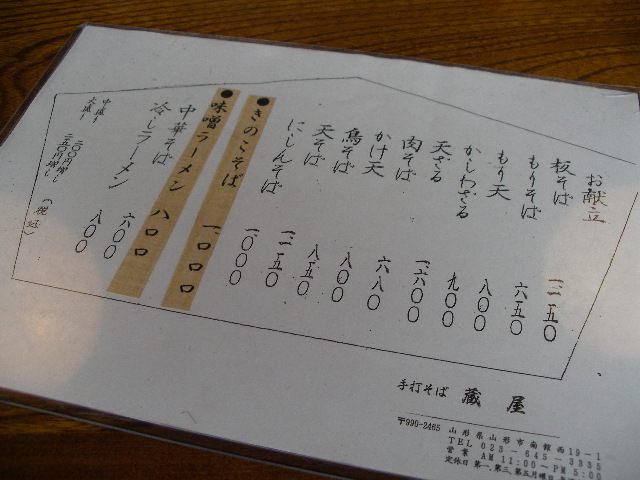 お献立
板そば 一、一五〇
もりそば 六五〇
もり天 八〇〇
かしわざる 九〇〇
天ざる 一、六〇〇
肉そば 六八〇
かけ天 八〇〇
鳥そば 八五〇
天そば 一、一五〇
にしんそば 一〇〇〇
●きのこそば 一、〇〇〇
●味噌ラーメン 八〇〇
中華そば 六〇〇
冷しラーメン 八〇〇
中盛り 二〇〇円増し
大盛り 二五〇円増し
(税込)
手打そば 蔵屋
〒990-2465 山形県山形市南館西19-1
TEL 023-645-3335
営業 AM11:00~PM5:00
定休日 第一、第三、第五月曜日